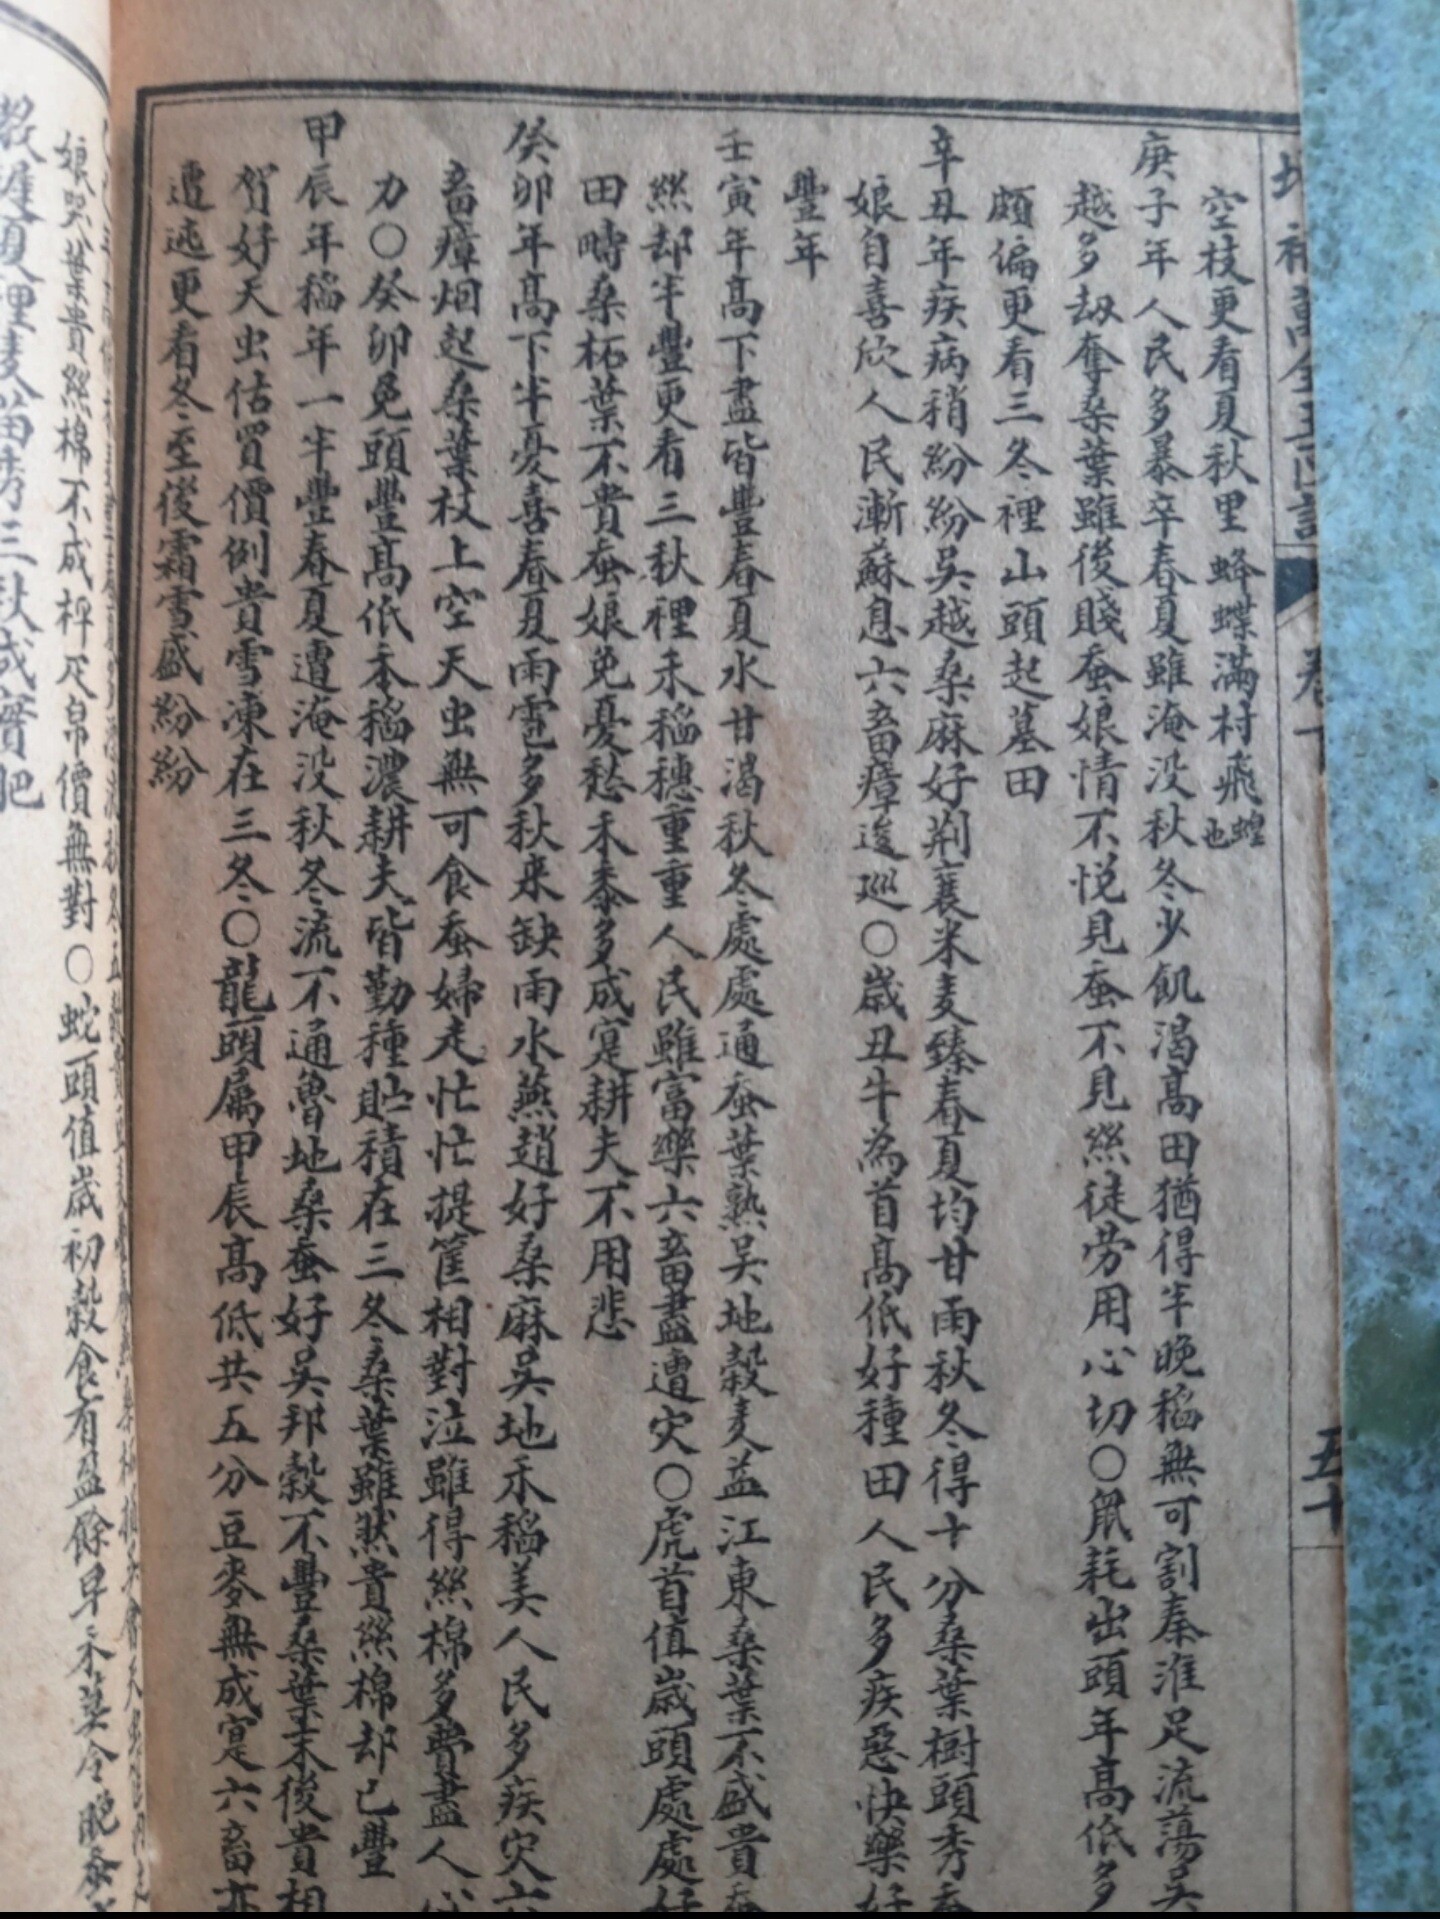 卷十
五十
空枝更看夏秋里蜂蝶滿村飛蝗也
庚子年人民多暴卒春夏雖淹没秋冬少飢渴高田猶得半晚稻無可割秦淮足流蕩吳
越多刼奪桑葉雖後賤蚕娘情不悦見蚕不見絲徒劳用心切〇鼠耗出頭年高低多
頗偏更看三冬裡山頭起墓田
辛丑年疾病稍紛紛吳越桑麻好荆襄米麦臻春夏均甘雨秋冬得十分桑葉樹頭秀蚕
娘自喜欣人民漸蘇息六畜瘴逡廵〇歲丑牛為首高低好種田人民多疾惡快樂好
豐年
壬寅年高下盡皆豐春夏水甘渴秋冬處處通蚕葉熟吳地穀麦益江東桑葉不盛貴蚕
絲却半豐更看三秋裡禾稻穗重重人民雖富樂六畜盡遭灾〇虎首值歲頭處處好
田疇桑柘葉不貴蚕娘免憂愁禾黍多成寔耕夫不用悲
癸卯年高下半憂喜春夏雨雹多秋来缺雨水燕趙好桑麻吳地禾稻美人民多疾灾六
畜瘴烟起桑葉枝上空天虫無可食蚕婦走忙忙提筐相對泣雖得絲棉多費盡人心
力〇癸卯免頭豐高低夲稻濃耕夫皆勤種貯積在三冬桑葉雖然貴絲棉却已豐
甲辰年稻年一半豐春夏遭淹没秋冬流不通魯地桑蚕好吳邦穀不豐桑葉末後貴相
贺好天虫估買價例貴雪凍在三冬〇龍頭属甲辰高低共五分豆麥無成寔六畜亦
遭迍更看冬至後霜雪盛紛紛
娘哭葉貴絲棉不成秤尺帛價無對〇蛇頭值歲初穀食有盈餘早禾莫令晚蚕